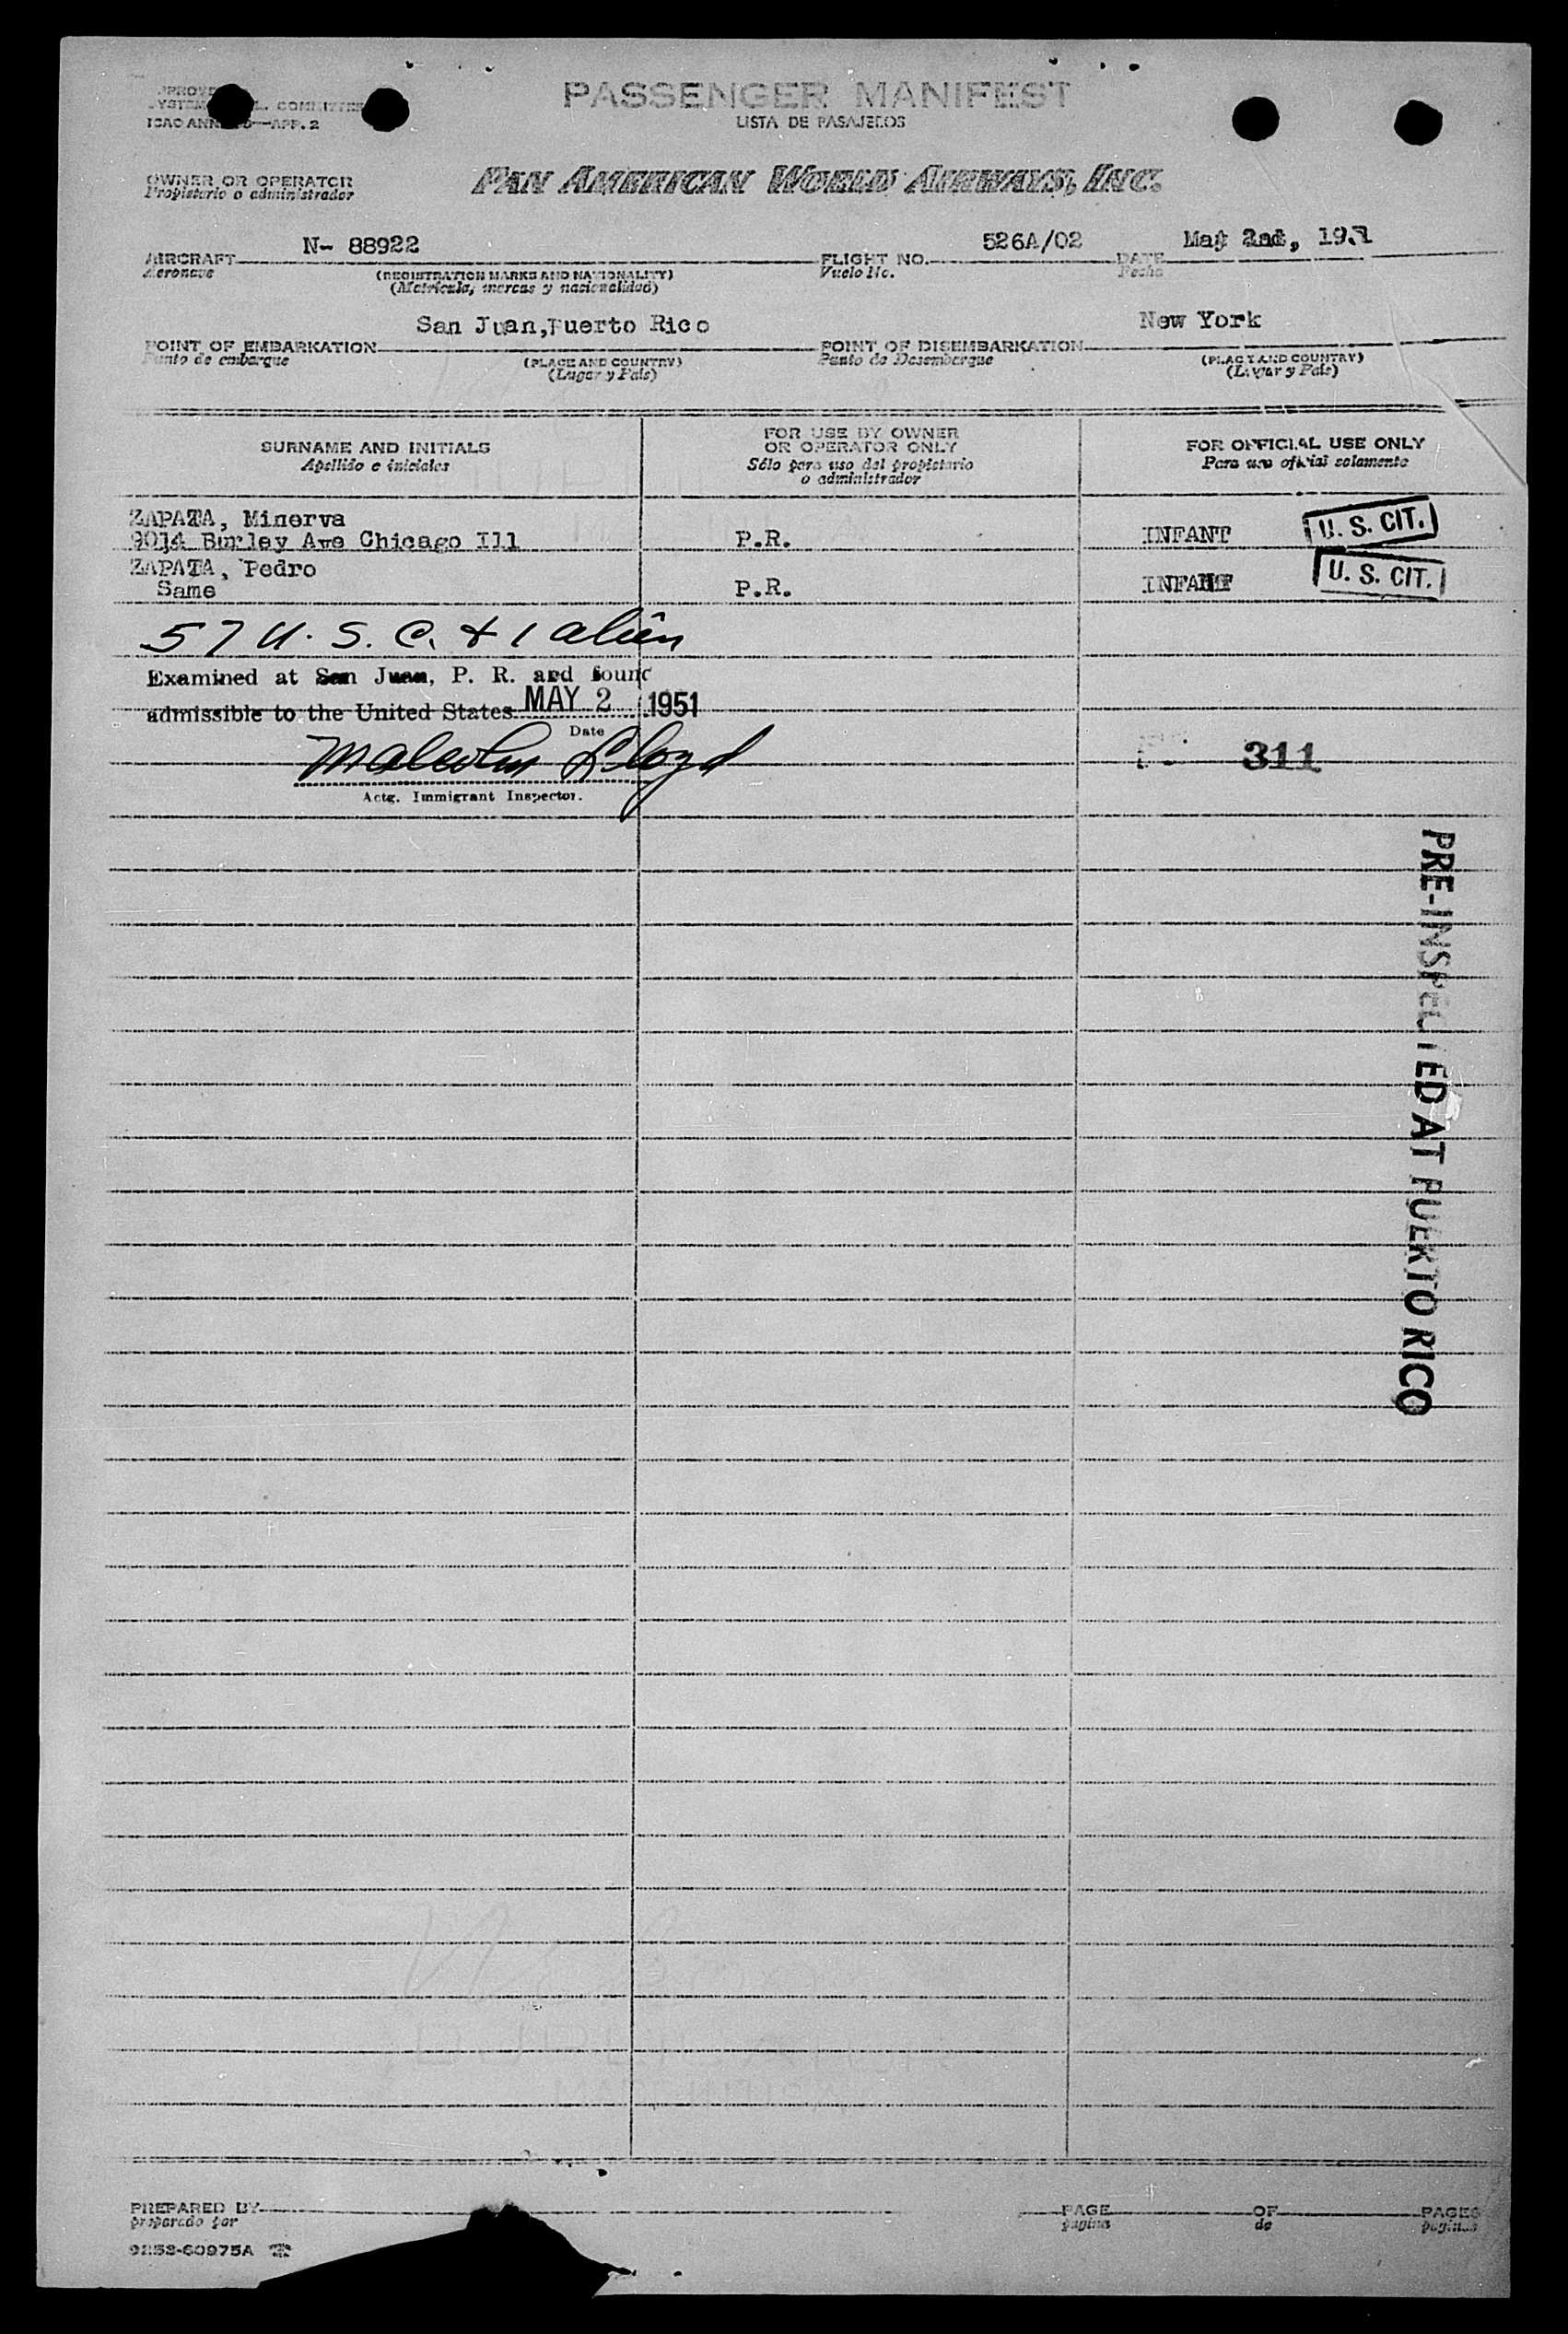 PASSENGER MANIFEST
LISTA DE PASAJEROS
COMMITTEE
ICAO APP. 2
OWNER OR OPERATOR
Propietario o administrador
PAN AMERICAN WORLD AIRWAYS, INC.
AIRCRAFT N- 88922 FLIGHT NO. 526A/02 DATE May 2nd, 1951
Aeronave (REGISTRATION MARKS AND NATIONALITY) Vuelo No. Fecha
(Matrícula, marcas y nacionalidad)
POINT OF EMBARKATION San Juan, Puerto Rico POINT OF DISEMBARKATION New York
Punto de embarque (PLACE AND COUNTRY) Punto de Desembarque (PLACE AND COUNTRY)
(Lugar y País) (Lugar y País)
SURNAME AND INITIALS
Apellido e iniciales
FOR USE BY OWNER
OR OPERATOR ONLY
Sólo para uso del propietario
o administrador
FOR OFFICIAL USE ONLY
Para uso oficial solamente
ZAPATA, Minerva
9014 Burley Ave Chicago Ill P.R. INFANT U. S. CIT.
ZAPATA, Pedro
Same P.R. INFANT U. S. CIT.
57 U. S. C. & 1 alien
Examined at San Juan, P. R. and found
admissible to the United States MAY 2 1951
Date
Malcolm Lloyd
Actg. Immigrant Inspector.
311
PRE-INSPECTED AT PUERTO RICO
PREPARED BY PAGE OF PAGES
preparado por pagina de paginas
9253-60975A